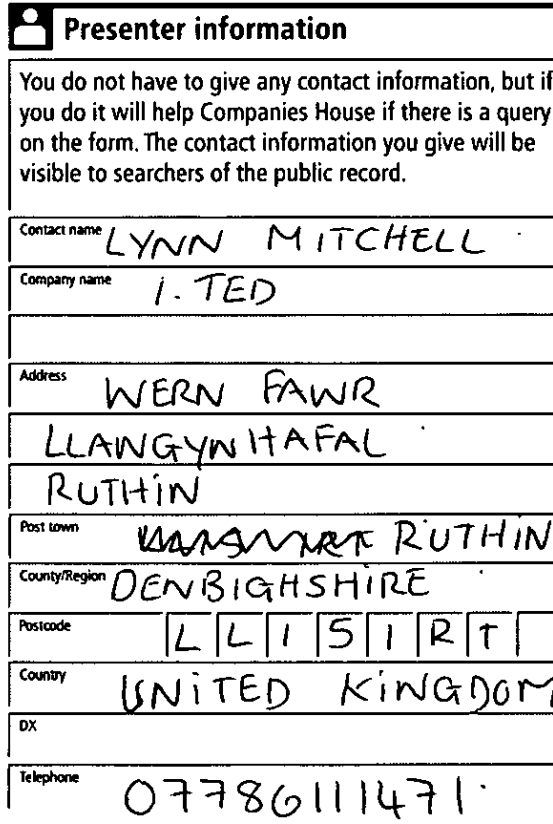 Presenter information
You do not have to give any contact information, but if
you do it will help Companies House if there is a query
on the form. The contact information you give will be
visible to searchers of the public record.
Contact name LYNN MITCHELL
Company name I. TED
Address WERN FAWR
LLANGYNHAFAL
RUTHIN
Post town RUTHIN
County/Region DENBIGHSHIRE
Postcode LL151RT
Country UNITED KINGDOM
DX
Telephone 07786111471